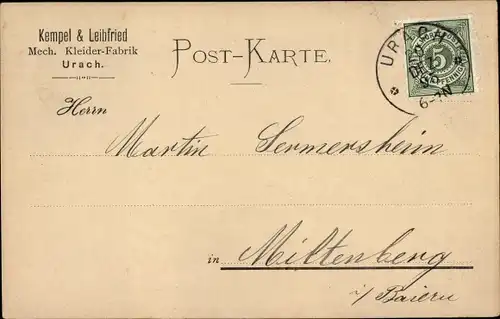 Kempel & Leibfried
Mech. Kleider-Fabrik
Urach.
POST-KARTE.
URACH
DEZ
6-7N
5
PFENNIG
Herrn
Martin Sermersheim
in Miltenberg
i/ Baiern